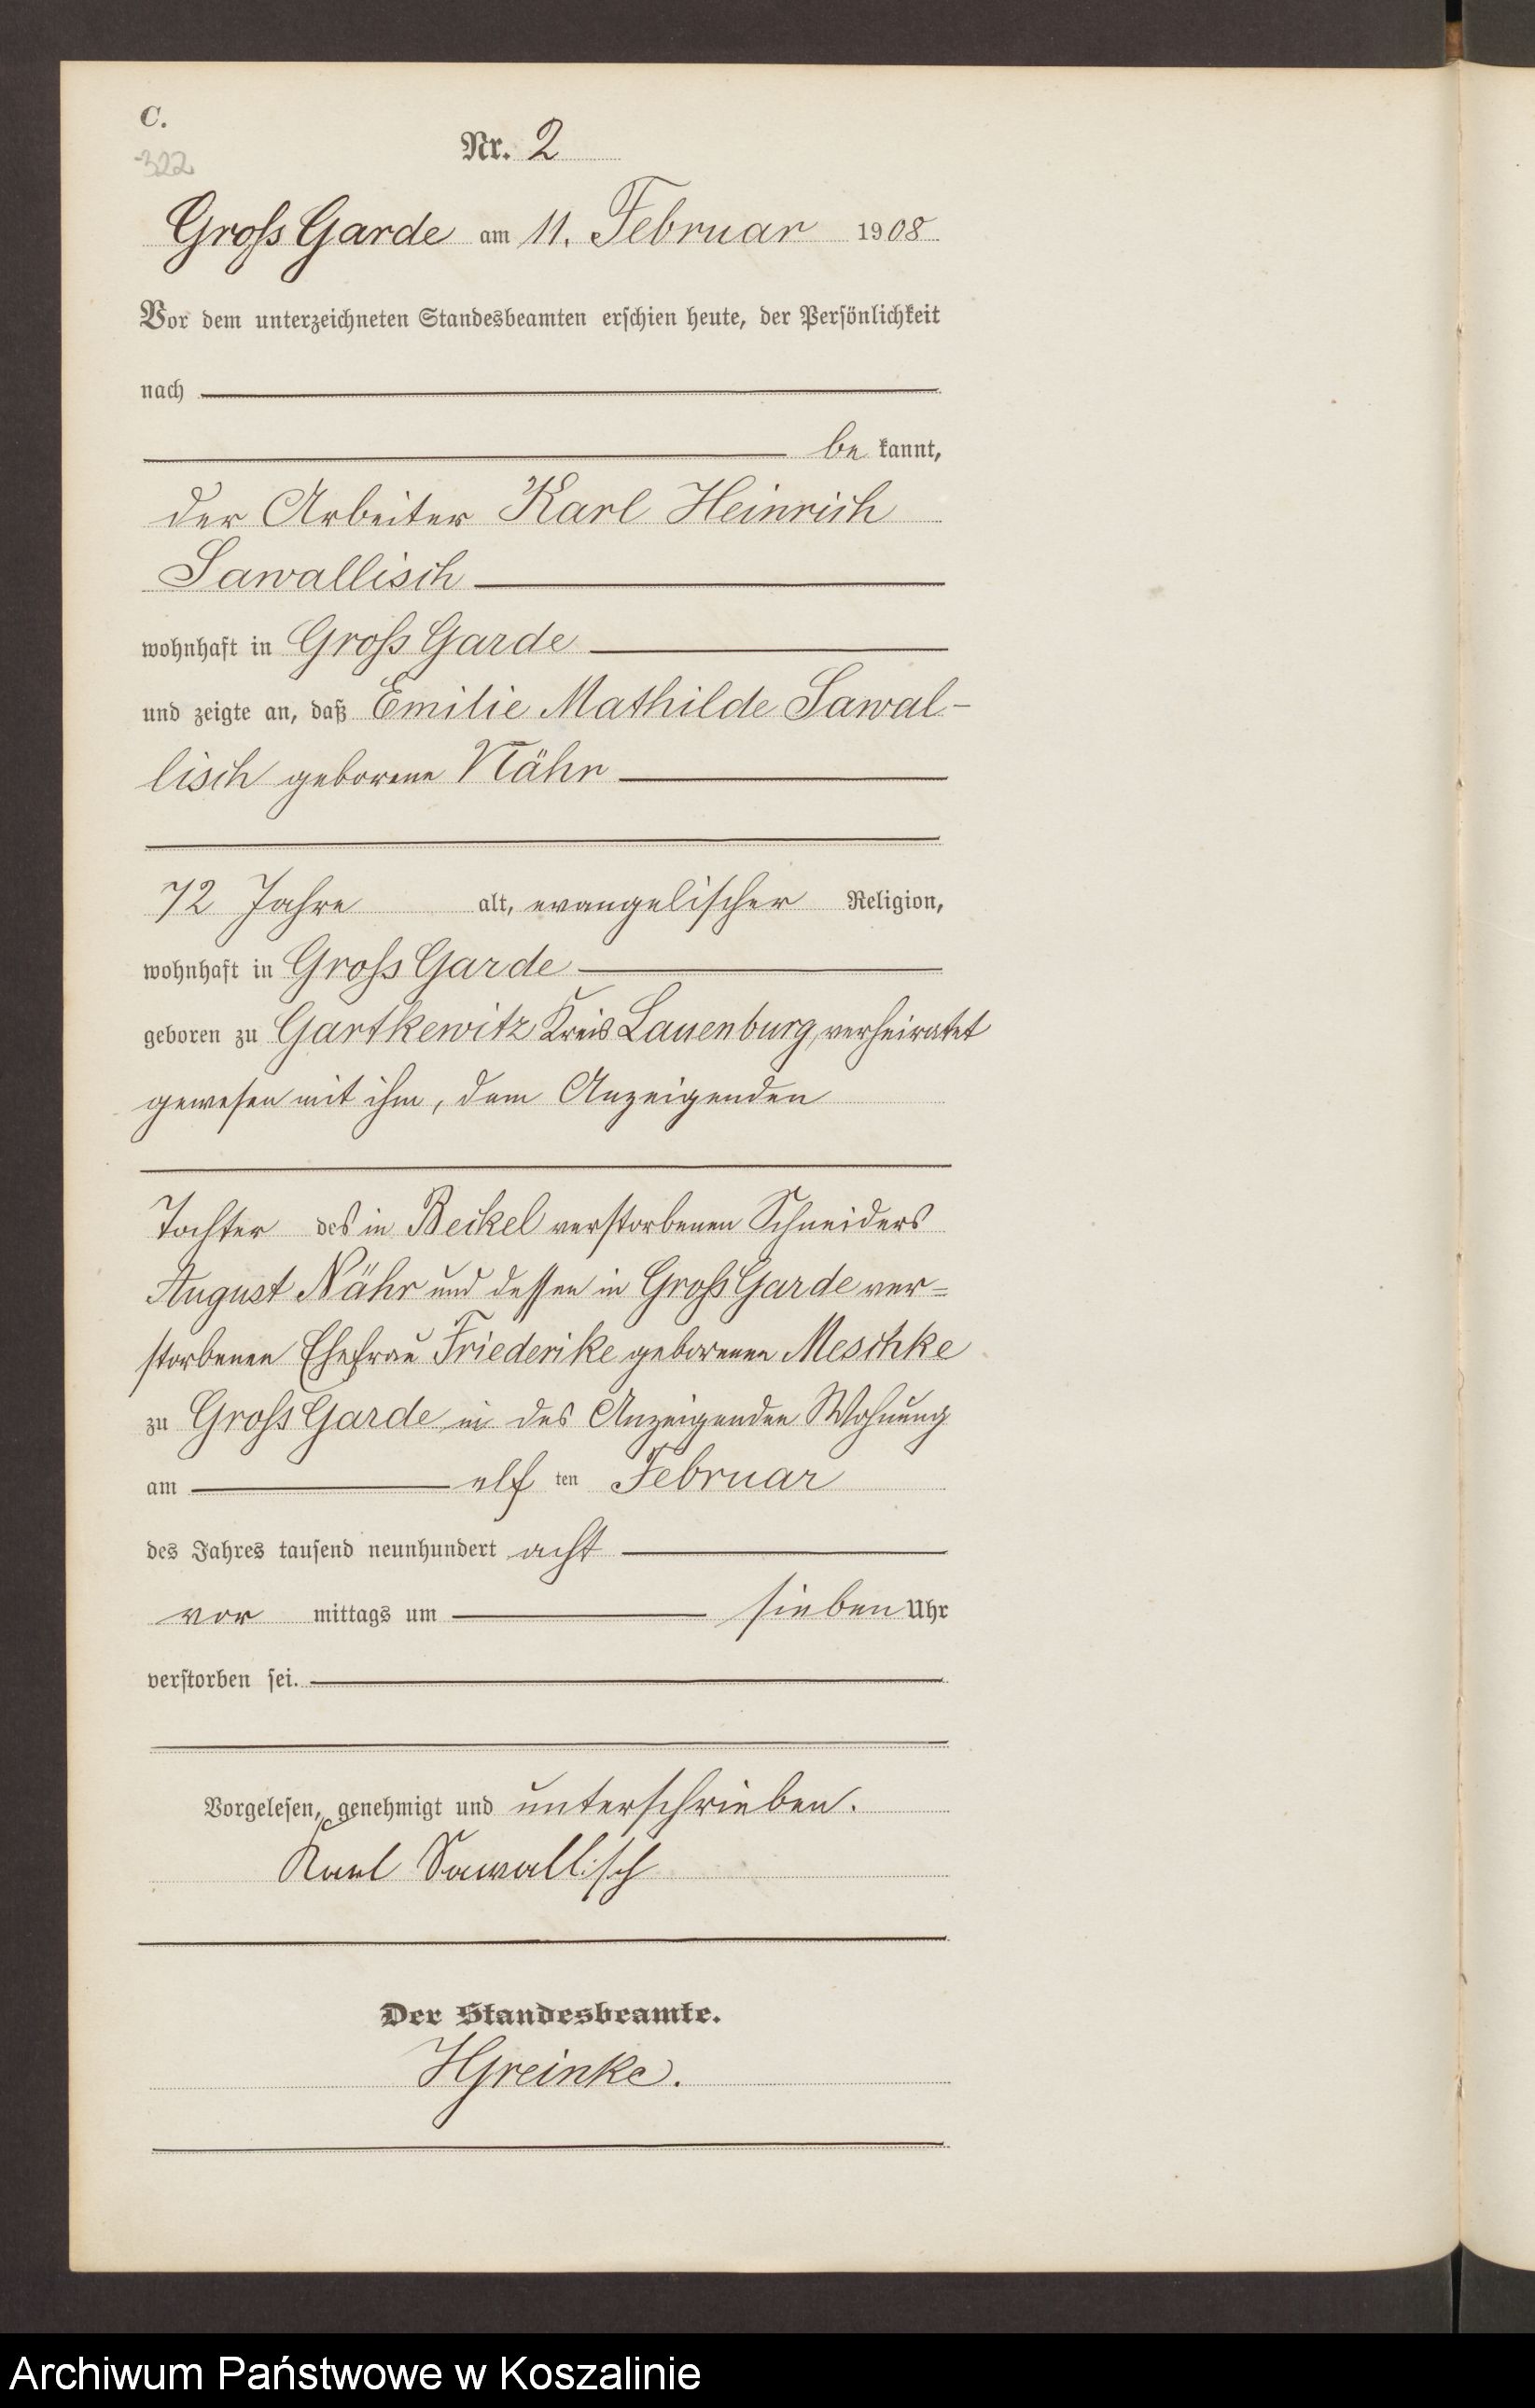 C.
322
Nr. 2
Groß Garde am 11. Februar 1908
Vor dem unterzeichneten Standesbeamten erschien heute, der Persönlichkeit
nach
be kannt,
der Arbeiter Karl Heinrich
Sawallisch
wohnhaft in Groß Garde
und zeigte an, daß Emilie Mathilde Sawal-
lisch geborene Nähr
72 Jahre alt, evangelischer Religion,
wohnhaft in Groß Garde
geboren zu Gartkewitz Kreis Lauenburg, verheiratet
gewesen mit ihm, dem Anzeigenden
Tochter des in Beckel verstorbenen Schneiders
August Nähr und dessen in Groß Garde ver=
storbenen Ehefrau Friederike geborenen Meschke
zu Groß Garde in des Anzeigenden Wohnung
am elf ten Februar
des Jahres tausend neunhundert acht
vor mittags um sieben Uhr
verstorben sei.
Vorgelesen, genehmigt und unterschrieben.
Karl Sawallisch
Der Standesbeamte.
HGreinke.
Archiwum Państwowe w Koszalinie